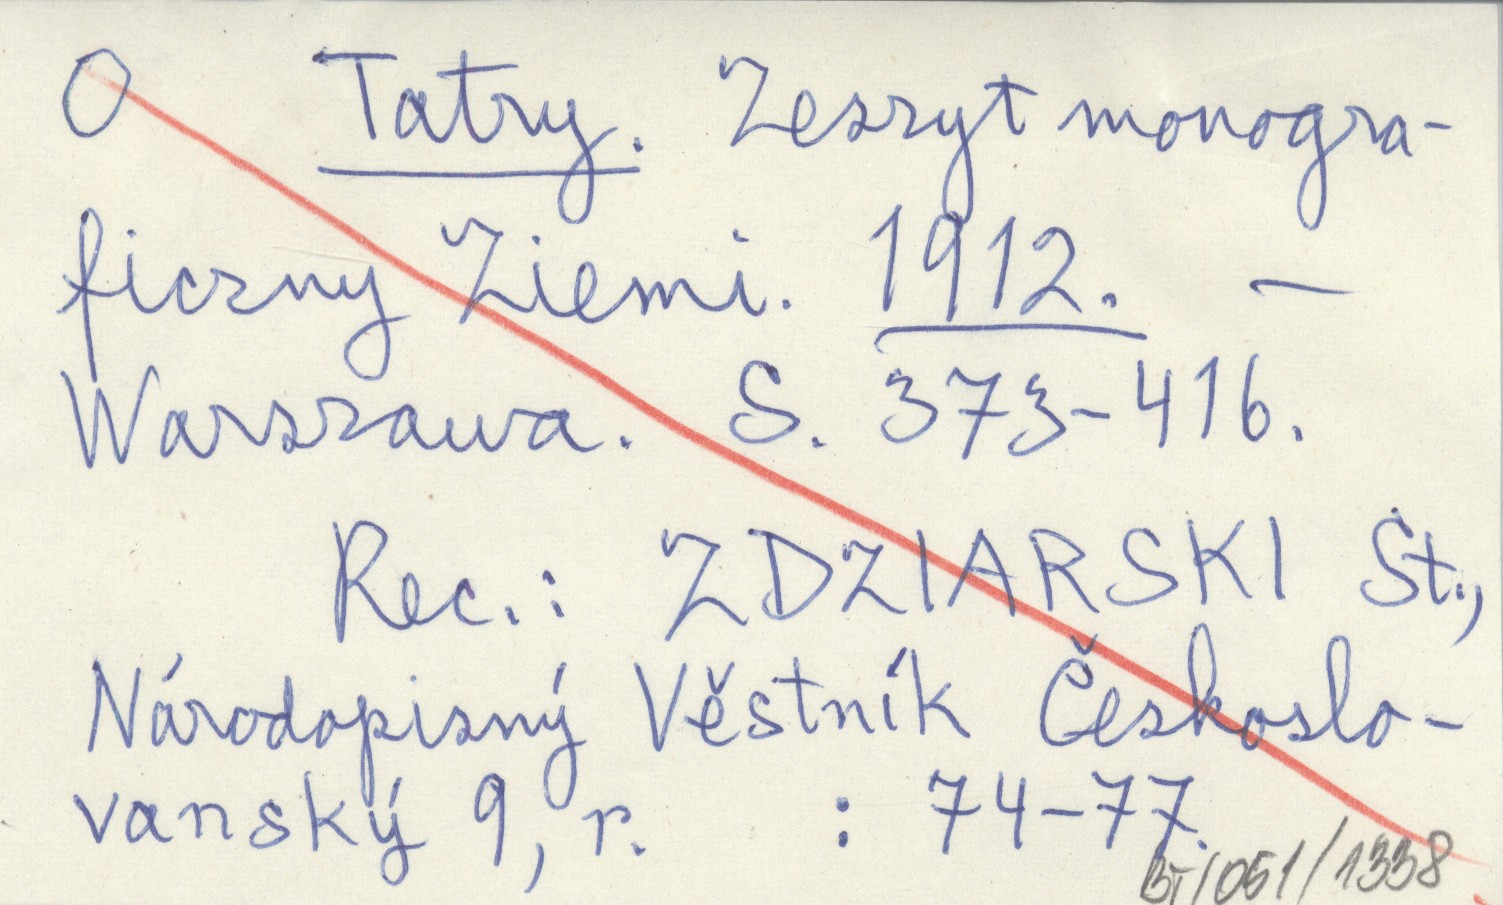 O Tatry. Zeszyt monogra-
ficzny Ziemi. 1912. —
Warszawa. S. 373-416.
Rec.: ZDZIARSKI St.,
Národopisný Věstník Českoslo-
vanský 9, r. : 74-77.
BT/051/1338